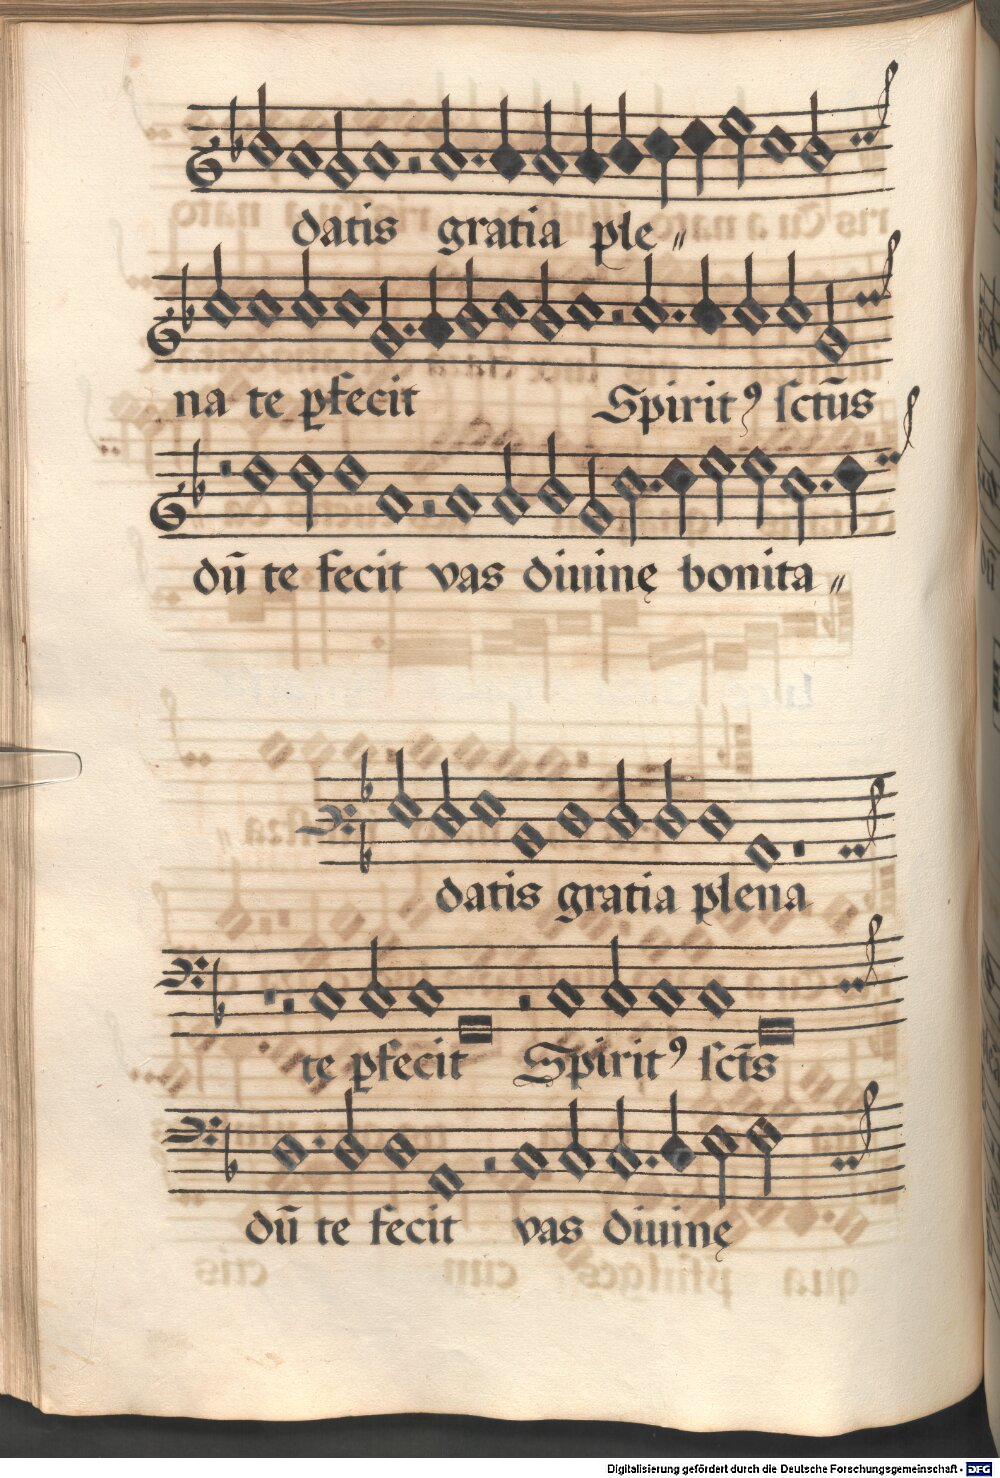 datis gratia ple〃
na te ꝑfecit Spiritꝰ sctūs
dū te fecit vas diuinę bonita〃
datis gratia plena
te ꝑfecit Spiritꝰ sct̄s
dū te fecit vas diuinę
Digitalisierung gefördert durch die Deutsche Forschungsgemeinschaft - DFG